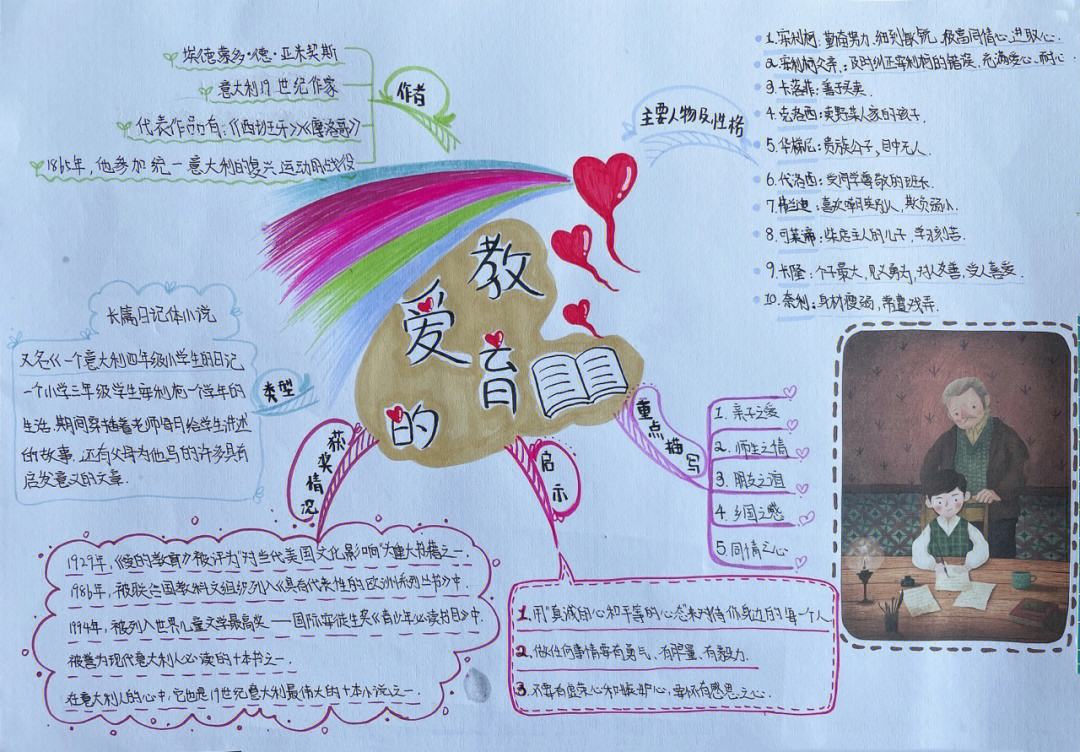 爱的教育
作者
埃德蒙多·德·亚米契斯
意大利19世纪作家
代表作品有:《西班牙》《摩洛哥》
1865年,他参加统一意大利的复兴运动用战役
主要人物及性格
1.安利柯:勤奋努力,细致敏锐,极富同情心,进取心.
2.安利柯父亲:及时纠正安利柯的错误,充满爱心、耐心.
3.卡洛菲:善于买卖.
4.克洛西:卖野菜人家的孩子.
5.华梯尼:贵族公子,目中无人.
6.代洛西:受同学尊敬的班长.
7.喜欢嘲笑别人,欺负弱小.
8.可莱谛:柴店主人的儿子,学习刻苦.
9.卡隆:个子最大,见义勇为,对人友善,受人喜爱.
10.奈利:身材瘦弱,常遭戏弄.
类型
长篇日记体小说
又名《一个意大利四年级小学生的日记
一个小学三年级学生安利柯一个学年的
生活,期间穿插着老师每日给学生讲述
的故事,还有父母为他写的许多具有
启发意义的文章.
获奖情况
1929年,《爱的教育》被评为"对当代美国文化影响"大重大书籍之一.
1986年,被联合国教科文组织列入《具有代表性的欧洲系列丛书》中.
1994年,被列入世界儿童文学最高奖——国际安徒生奖《青少年必读书目》中.
被誉为现代意大利人必读的十本书之一.
在意大利人的心中,它也是19世纪意大利最伟大的十本小说之一.
启示
1.用真诚的心和平等的心态来对待你身边的每个人
2.做任何事情要有勇气、有胆量、有毅力.
3.不要有虚荣心和嫉妒心,要怀有感恩之心.
重点描写
1.亲子之爱
2.师生之情
3.朋友之谊
4.乡国之感
5.同情之心